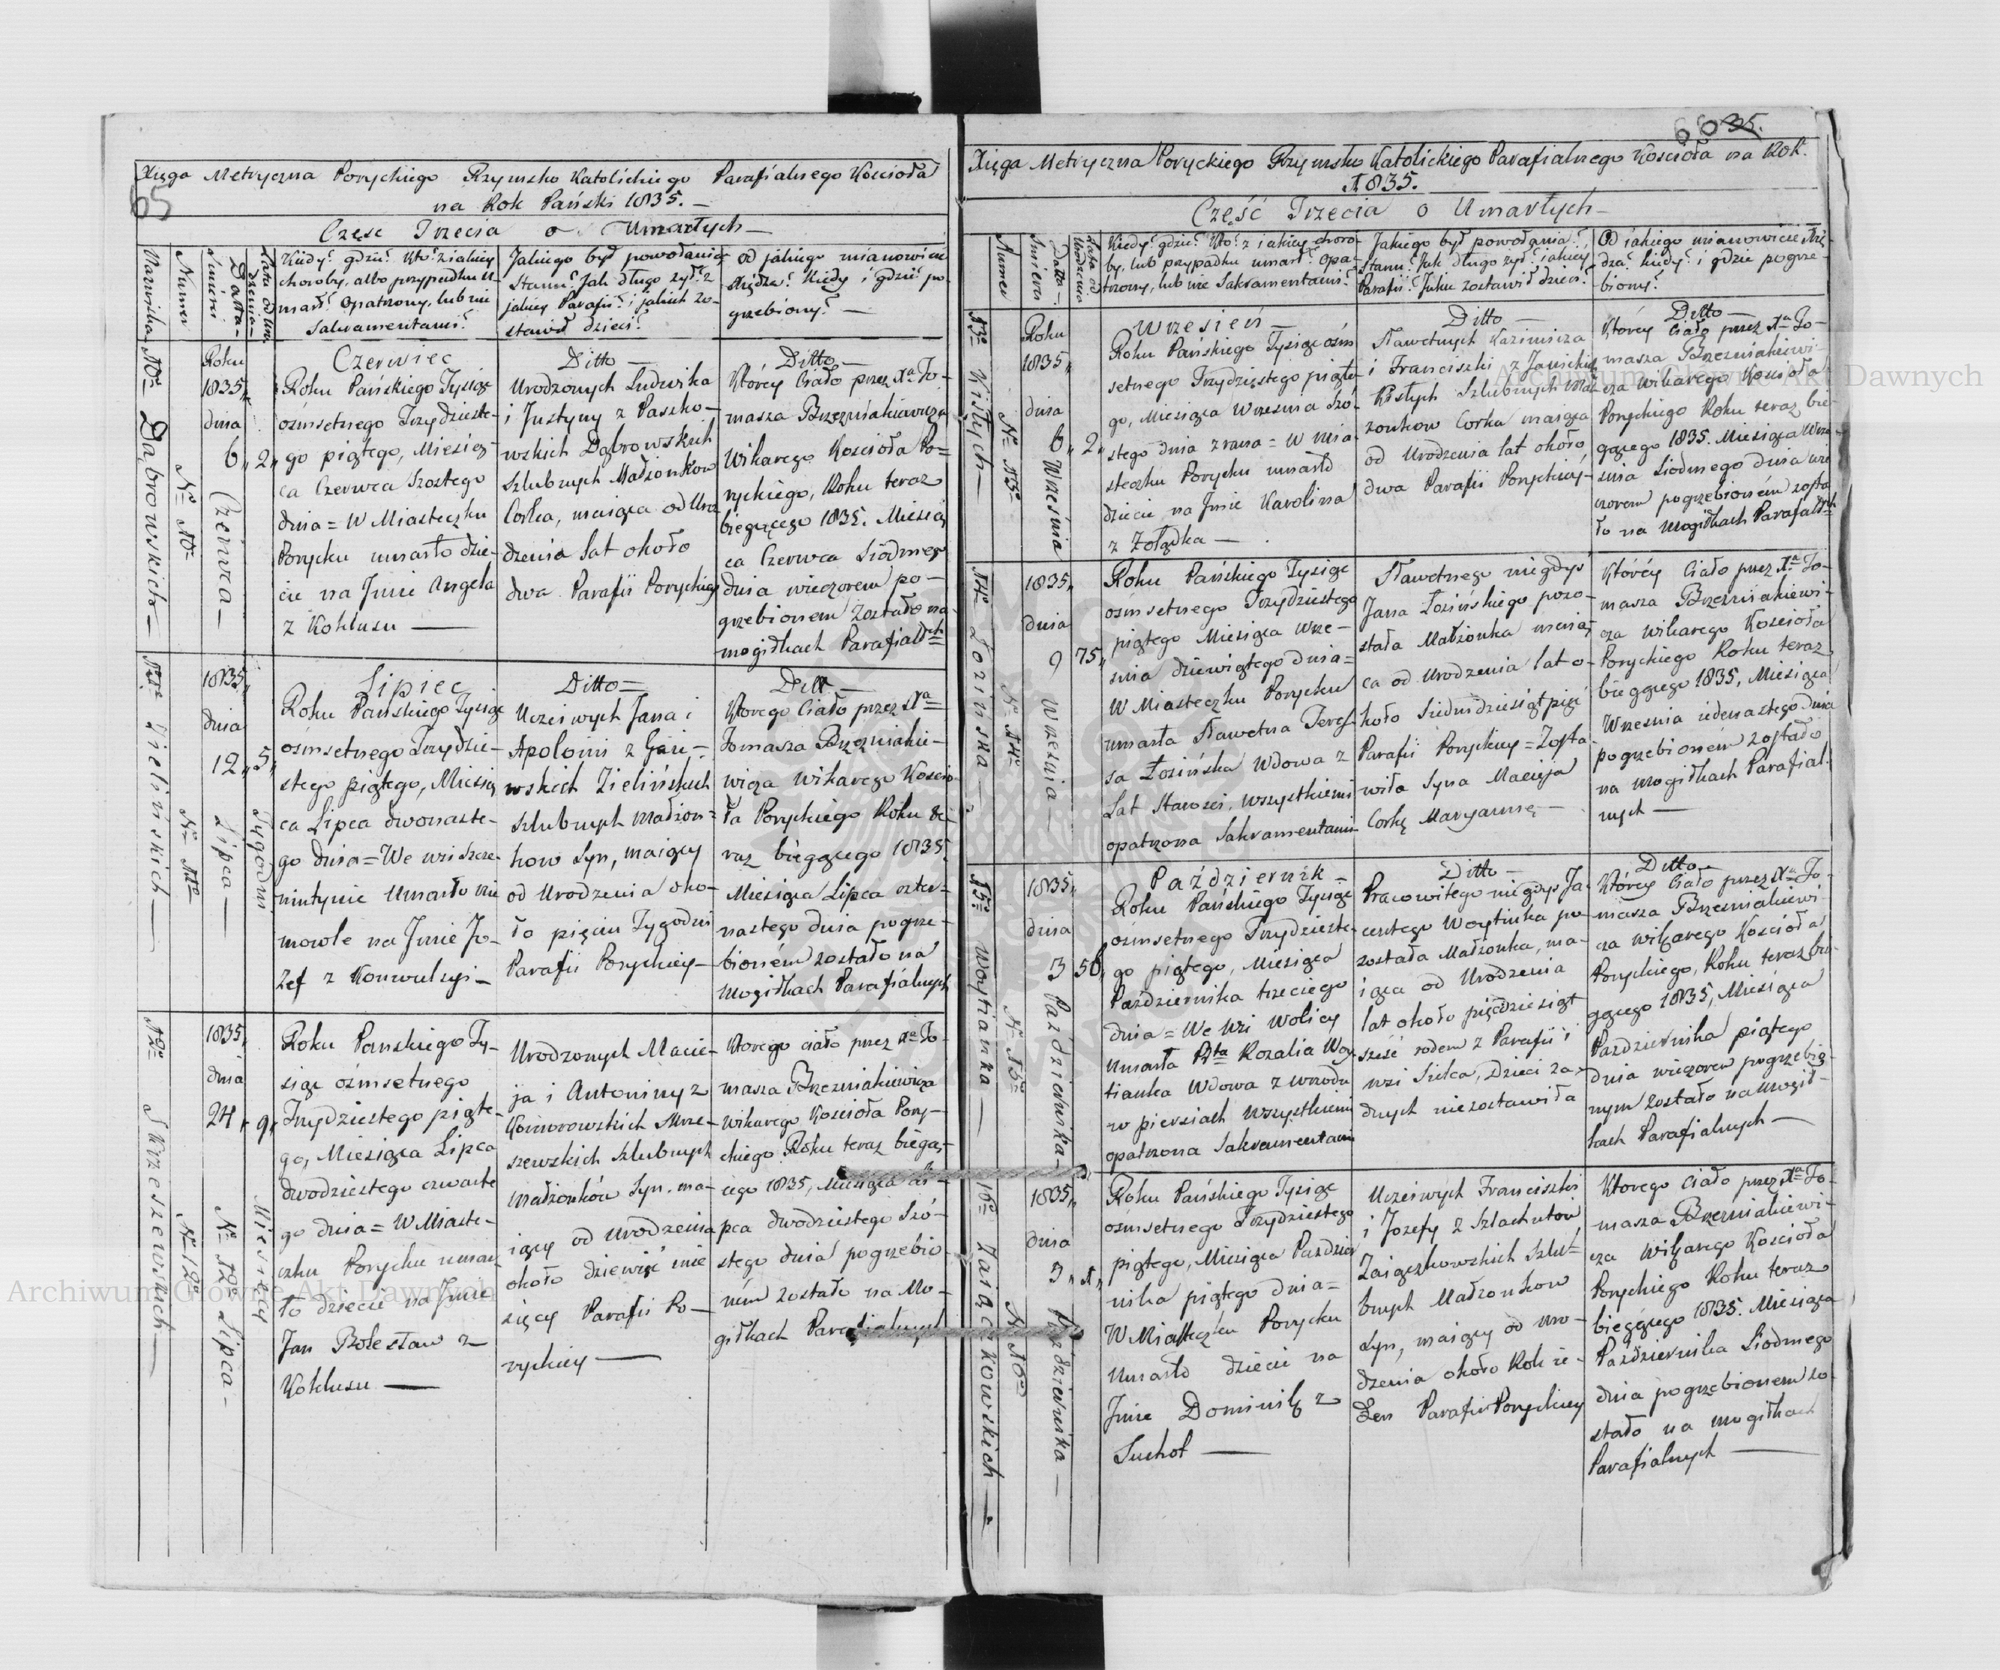 65
Xięga Metryczna Poryckiego Rzymsko Katolickiego Parafialnego Kościoła
na Rok Pański 1835. —
Częsc Trzecia o Umarłych —
Nazwiska
Numer
Data śmierci
Lata od Urodzenia
Kiedy? gdzie? Kto? z iakiey
choroby, albo przypadku u-
marł? Opatrzony, lub nie
Sakramentami?
Jakiego był powołania
Stanu? Jak długo żył? z
jakiey Parafii? i jakich zo-
stawił dzieci?
Od jakiego mianowicie
Xiędza? Kiedy i gdzie po-
grzebiony? —
No 10
Dąbrowskich —
No 10
Roku
1835,
dnia
6 Czerwca —
2
Czerwiec
Roku Pańskiego Tysiąc
ośmsetnego Trzydzieste-
go piątego, Miesią-
ca Czerwca Szostego
dnia = W Miasteczku
Porycku umarło dzie-
cie na Jmie Angela
z Kokluszu —
Ditto —
Urodzonych Ludwika
i Justyny z Paszko-
wskich Dąbrowskich
Szlubnych Małżonkow
Corka, maiąca od Uro
dzenia Lat około
dwa Parafii Poryckiey
Ditto —
Którey Ciało przez Xa To-
masza Brzezniakiewicza
Wikarego Kościoła Po-
ryckiego, Roku teraz
biegącego 1835. Miesią
ca Czerwca Siódmego
dnia wieczorem po-
grzebionem Zostało na
mogiłkach Parafialch
No 11
Zielińskich —
No 11
1835,
dnia
12 Lipca —
5 Tygodni
Lipiec
Roku Pańskiego Tysiąc
ośmsetnego Trzydzie-
stego piątego, Miesią
ca Lipca dwonaste-
go dnia = We wsi Szcze-
niutynie Umarło nie
mowle na Jmie Jo-
zef z Konwulsyi —
Ditto =
Uczciwych Jana i
Apolonii z
wskich Zielińskich
Szlubnych Małżon-
kow Syn, maiący
od Urodzenia oko-
ło pięciu Tygodni
Parafii Poryckiey —
Ditto —
Ktorego Ciało przez Xa
Tomasza Brzezniakie-
wicza Wikarego Koscio
ła Poryckiego Roku te
raz biegącego 1835.
Miesiąca Lipca czter-
nastego dnia pogrze-
bioném zostało na
Mogiłkach Parafialnych
No 12
Skrzeszewskich —
No 12
1835,
dnia
24 Lipca —
9 Miesięcy
Roku Panskiego Ty-
siąc ośmsetnego
Trzydziestego piąte-
go, Miesiąca Lipca
dwodziestego czwarte
go dnia = W Miaste-
czku Porycku umar
ło dziecie na Jmie
Jan Bolesław z
Kokluszu —
Urodzonych Macie-
ja i Antoniny z
Komorowskich Skrze-
szewskich Szlubnych
Małżonków Syn, ma-
iący od Urodzenia
około dziewięć mie
sięcy Parafii Po-
ryckiey —
Ktorego ciało przez Xa To-
masza Brzezniakiewicza
wikarego Kościoła Pory-
ckiego Roku teraz biegą-
cego 1835, Miesiąca Li-
pca dwodziestego Szó-
stego dnia pogrzebio
ném zostało na Mo-
giłkach Parafialnych
66 35.
Xięga Metryczna Poryckiego Rzymsko Katolickiego Parafialnego Kościoła na Rok.
1835.
Część Trzecia o Umarłych —
Numer
Data
Śmierci
Lata od
Urodzenia
Kiedy? gdzie? Kto? z iakiey choro-
by, lub przypadku umarł? Opa-
trzony, lub nie Sakramentami?
Jakiego był powołania?
Stanu? Jak długo żył? iakiey
Parafii? Jakie zostawił dzieci?
Od iakiego mianowicie Xię-
dza? kiedy? i gdzie pogrze-
biony?
13o
Kistych —
No 13o
Roku
1835,
dnia
6 Września
2
Wrzesień —
Roku Pańskiego Tysiąc ośm
setnego Trzydziestego piąte-
go, Miesiąca Wrzesnia Szó-
stego dnia zrana = W Mia-
steczku Porycku umarło
dziecie na Jmie Karolina
z Żołądka —
Ditto —
Sławetnych Kazimierza
i Franciszki z Janickich
Kistych Szlubnych Mał-
żonkow Corka maiąca
od Urodzenia lat około
dwa Parafii Poryckiey
Ditto —
Którey Ciało przez Xa To-
masza Brzezniakiewi-
cza wikarego Kościoła
Poryckiego Roku teraz bie-
gącego 1835. Miesiąca Wrze-
śnia Siódmego dnia wie
czorem pogrzebioném zosta
ło na Mogiłkach Parafialch
14o
Łozinska —
No 14o
1835,
dnia
9 Wrzesnia —
75
Roku Pańskiego Tysiąc
osmsetnego Trzydziestego
piątego Miesiąca Wrze-
śnia dziewiątego dnia =
W Miasteczku Porycku
umarła Sławetna Teres
sa Łozińska Wdowa z
Lat Starosci, wszystkiemi
opatrzona Sakramentami
Sławetnego niegdys
Jana Łozińskiego pozo-
stała Małżonka maią
ca od Urodzenia lat o-
koło Siedmdziesiąt pięć
Parafii Poryckiey = Zosta
wiła Syna Macieja
Corkę Maryannę —
Którey Ciało przez Xa To-
masza Brzezniakiewi-
cza wikarego Kościoła
Poryckiego Roku teraz
biegącego 1835, Miesiąca
Wrzesnia iedenastego dnia
pogrzebioném zostało
na Mogiłkach Parafial-
nych —
15o
Woytianka —
No 15o
1835,
dnia
3 Października —
56
Październik —
Roku Pańskiego Tysiąc
ośmsetnego Trzydzieste
go piątego, Miesiąca
Października trzeciego
dnia = We Wsi Wolicy
Umarła Pta Rozalia Woy
tianka Wdowa z wrzodu
w piersiach wszystkiemi
opatrzona Sakramentami
Ditto —
Pracowitego niegdys Ja-
centego Woytiuka po
została Małżonka, ma-
iąca od Urodzenia
lat około pięćdziesiąt
sześć rodem z Parafii i
wsi Sielca, Dzieci ża-
dnych niezostawiła
Ditto —
Którey Ciało przez Xa To-
masza Brzezniakiewi-
cza wikarego Kościoła
Poryckiego, Roku teraz bie
gącego 1835, Miesiąca
Pazdziernika piątego
dnia wieczorem pogrzebio
nym zostało na Mogił-
kach Parafialnych —
16o
Zaiączkowskich —
No 16o
1835,
dnia
5 Października —
1
Roku Pańskiego Tysiąc
ośmsetnego Trzydziestego
piątego, Miesiąca Pazdzier
nika piątego dnia =
W Miasteczku Porycku
Umarło dziecie na
Jmie Dominik z
Suchot —
Uczciwych Franciszka
i Jozefy z Szlachutow
Zaiączkowskich Szlu-
bnych Małżonkow
Syn, maiący od Uro-
dzenia około Rok ie-
den Parafii Poryckiey
Ktorego Ciało przez Xa To-
masza Brzezniakiewi-
cza Wikarego Kościoła
Poryckiego Roku teraz
biegącego 1835. Miesiąca
Października Siodmego
dnia pogrzebionem zo-
stało na Mogiłkach
Parafialnych —
Archiwum Główne Akt Dawnych
Archiwum Główne Akt Dawnych